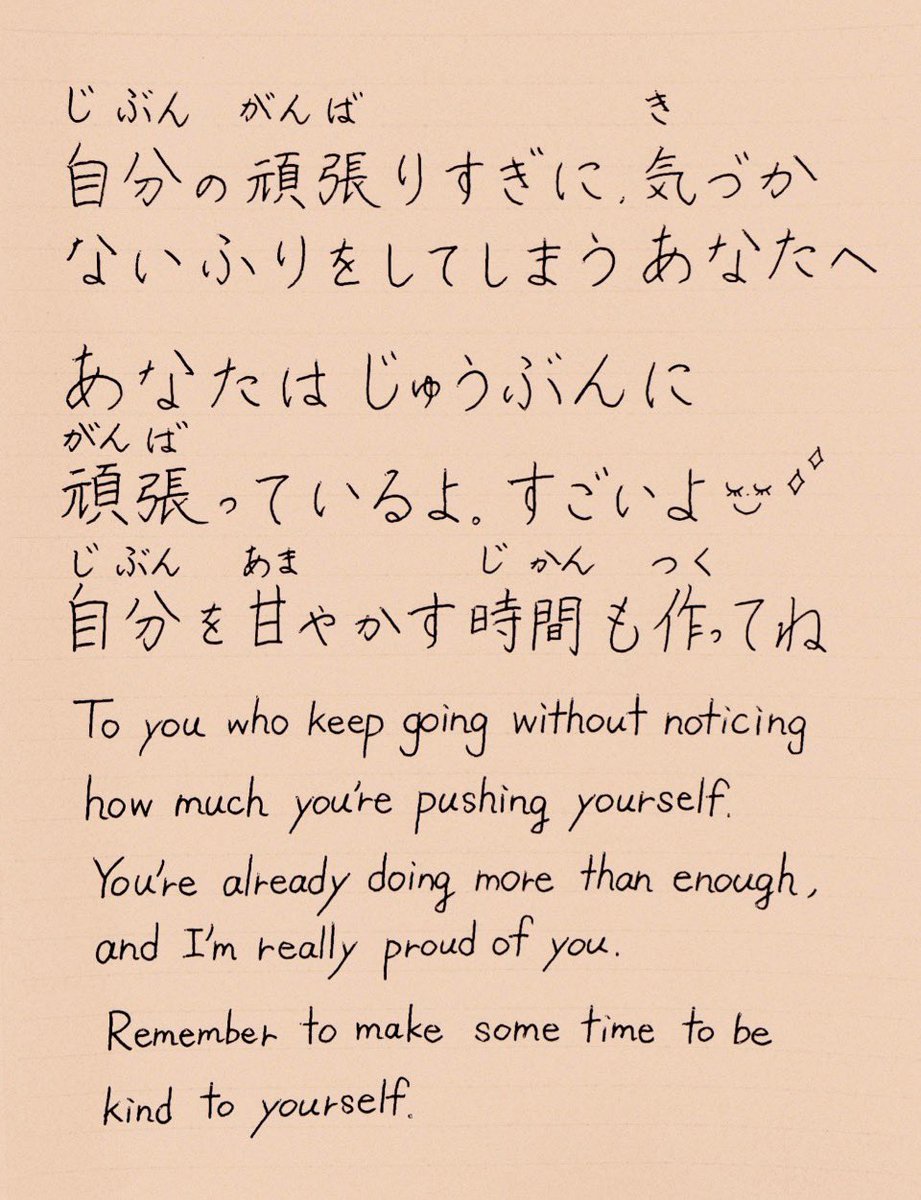 じぶん がんば き
自分の頑張りすぎに、気づか
ないふりをしてしまうあなたへ
あなたはじゅうぶんに
がんば
頑張っているよ。すごいよ
じぶん あま じかん つく
自分を甘やかす時間も作ってね
To you who keep going without noticing
how much you're pushing yourself.
You're already doing more than enough,
and I'm really proud of you.
Remember to make some time to be
kind to yourself.